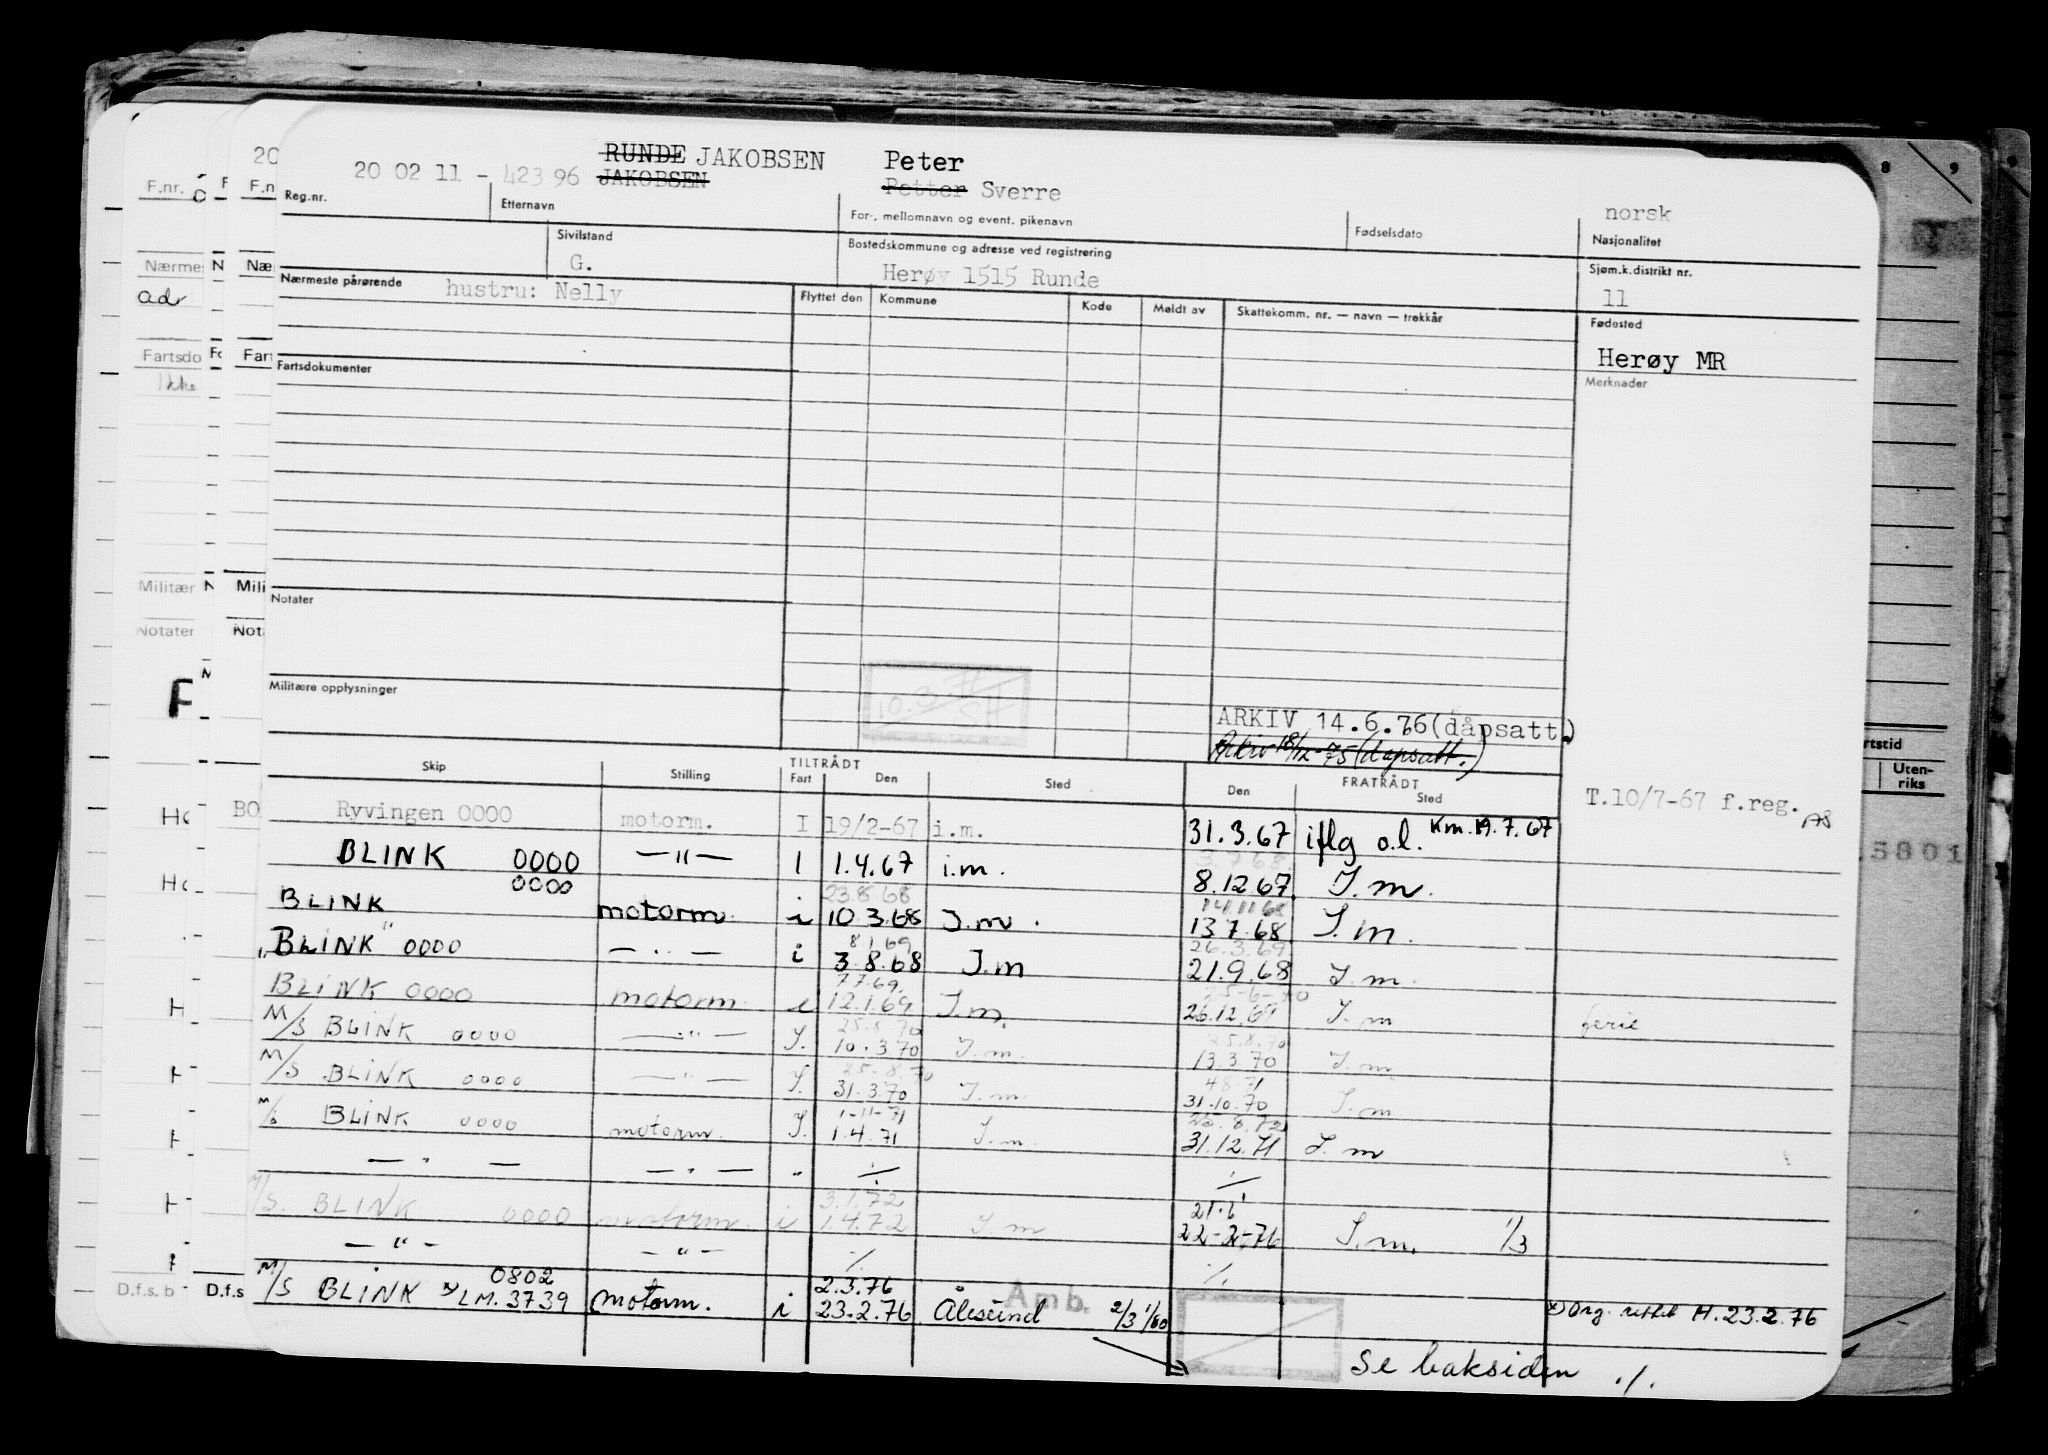 RUNDE JAKOBSEN Peter
20 02 11 - 42396 JAKOBSEN Petter Sverre norsk
Reg.nr. Etternavn For-, mellomnavn og event. pikenavn Fødselsdato Nasjonalitet
Sivilstand Bostedskommune og adresse ved registrering Sjøm.k.distrikt nr.
G. Herøy 1515 Runde 11
Nærmeste pårørende hustru: Nelly Flyttet den Kommune Kode Meldt av Skattekomm. nr. — navn — trekkår Fødested
Herøy MR
Fartsdokumenter Merknader
Notater
Militære opplysninger
ARKIV 14.6.76(dåpsatt.)
Arkiv 18/12-75 (dåpsatt.)
Skip Stilling TILTRÅDT Fart Den Sted FRATRÅDT Den Sted
Ryvingen 0000 motorm. I 19/2-67 i.m. 31.3.67 iflg o.l. Km. 19.7.67 T.10/7-67 f.reg.
BLINK 0000 —"— I 1.4.67 i.m. 8.12.67 I.m.
0000 23.8.68 14.11.68
BLINK motorm. i 10.3.68 I.m. 13.7.68 I.m.
8.1.69 26.3.69
"BLINK" 0000 —"— i 3.8.68 I.m 21.9.68 I.m.
7.7.69.
BLINK 0000 motorm. i 12.1.69 I.m. 26.12.69 I.m ferie
25.8.70 25.8.70
M/S BLINK 0000 —"— I. 10.3.70 I.m. 13.3.70 I.m.
25.8.70 4.8.71
M/S BLINK 0000 —"— I. 31.3.70 I.m. 31.10.70 I.m
1-11-71
M/S BLINK 0000 motorm. I. 1.4.71 I.m. 31.12.71 I.m
—"— —"— " ./. ./.
3.1.72
M/S. BLINK 0000 motorm. i 1.4.72 I m 22-2-76 I.m. 1/3
—"— —"— ./. ./.
0802 2.3.76
M/S BLINK x) LM.3739 motorm. i 23.2.76 Ålesund Amb. 2/3 1/80 x) Org. rettet H.23.2.76
Se baksiden ./.
F.nr. F.n
Nærmes
adr
Fartsdo
Ikke
Militær
Notater
D.f.s. b D.f.s
8 9
rtstid
Uten-
riks
5801